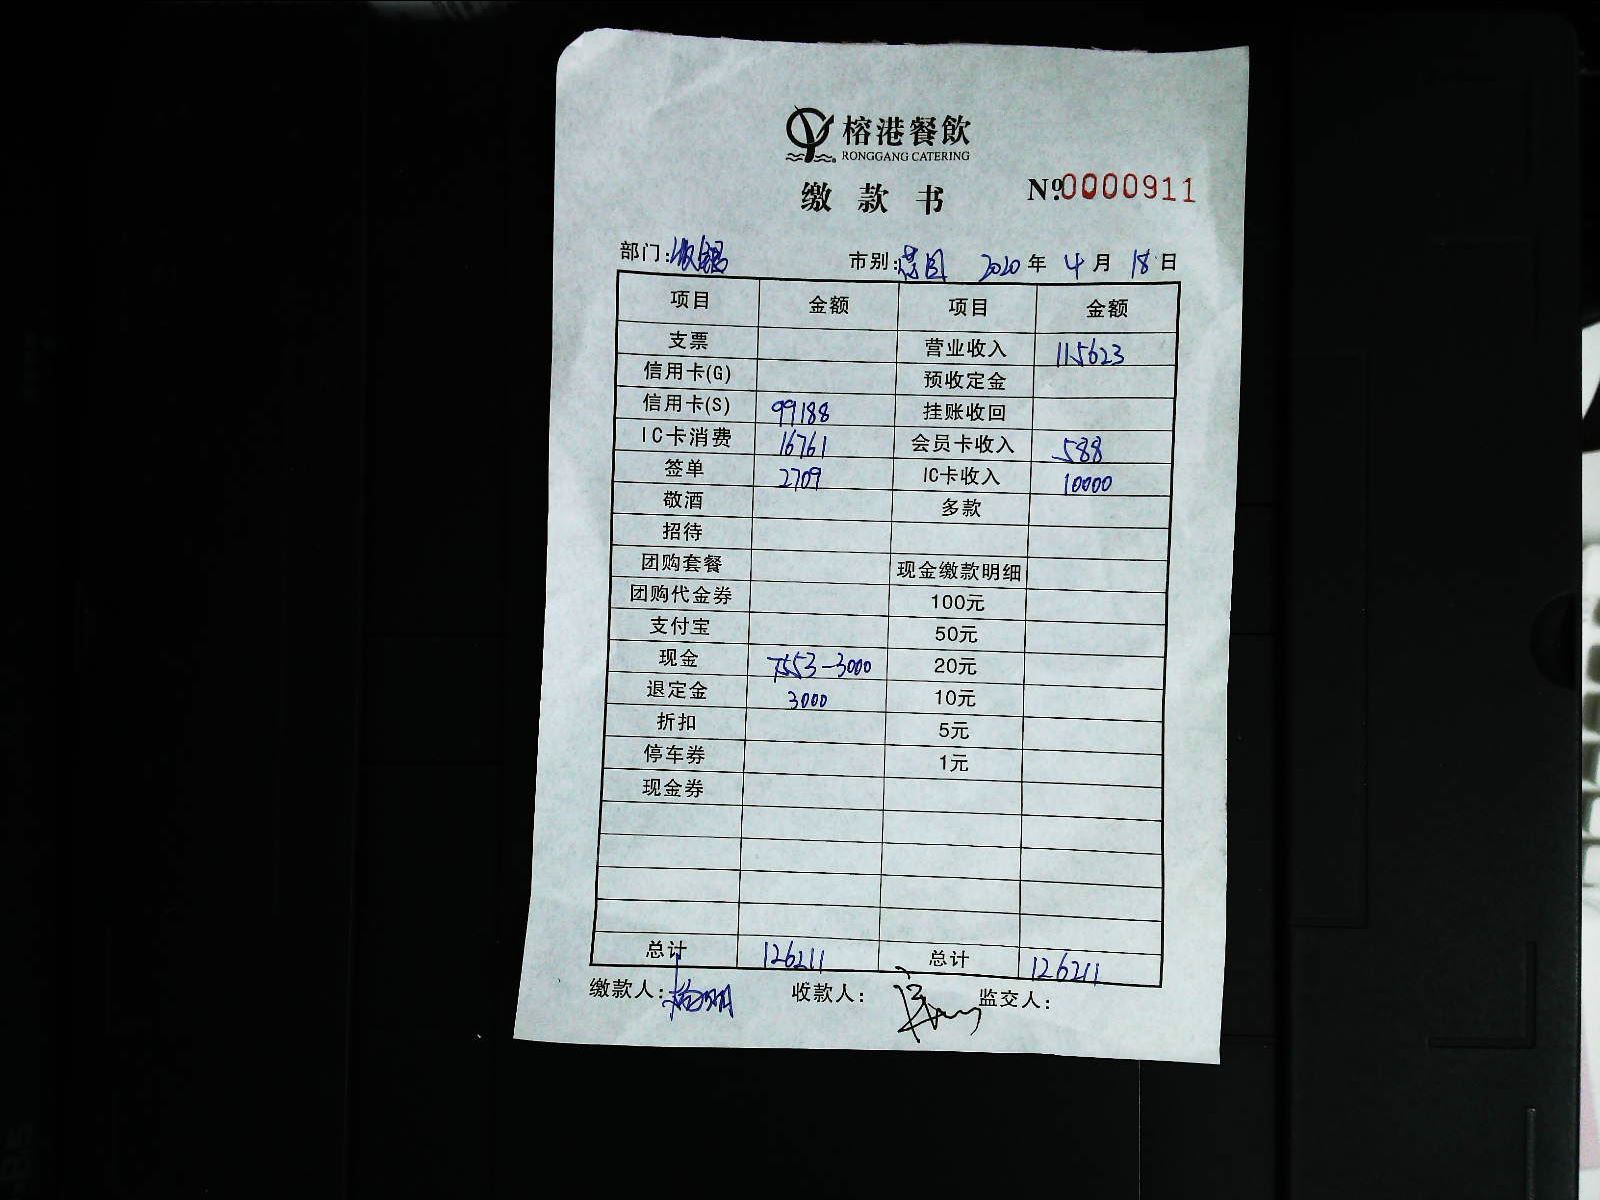 榕港餐飲
RONGGANG CATERING
缴款书 №0000911
部门:收银 市别: 2020年4月18日
项目 金额 项目 金额
支票 营业收入 115623
信用卡(G) 预收定金
信用卡(S) 99188 挂账收回
IC卡消费 16761 会员卡收入 588
签单 2709 IC卡收入 10000
敬酒 多款
招待
团购套餐 现金缴款明细
团购代金券 100元
支付宝 50元
现金 7553-3000 20元
退定金 3000 10元
折扣 5元
停车券 1元
现金券
总计 126211 总计 126211
缴款人: 收款人: 监交人: